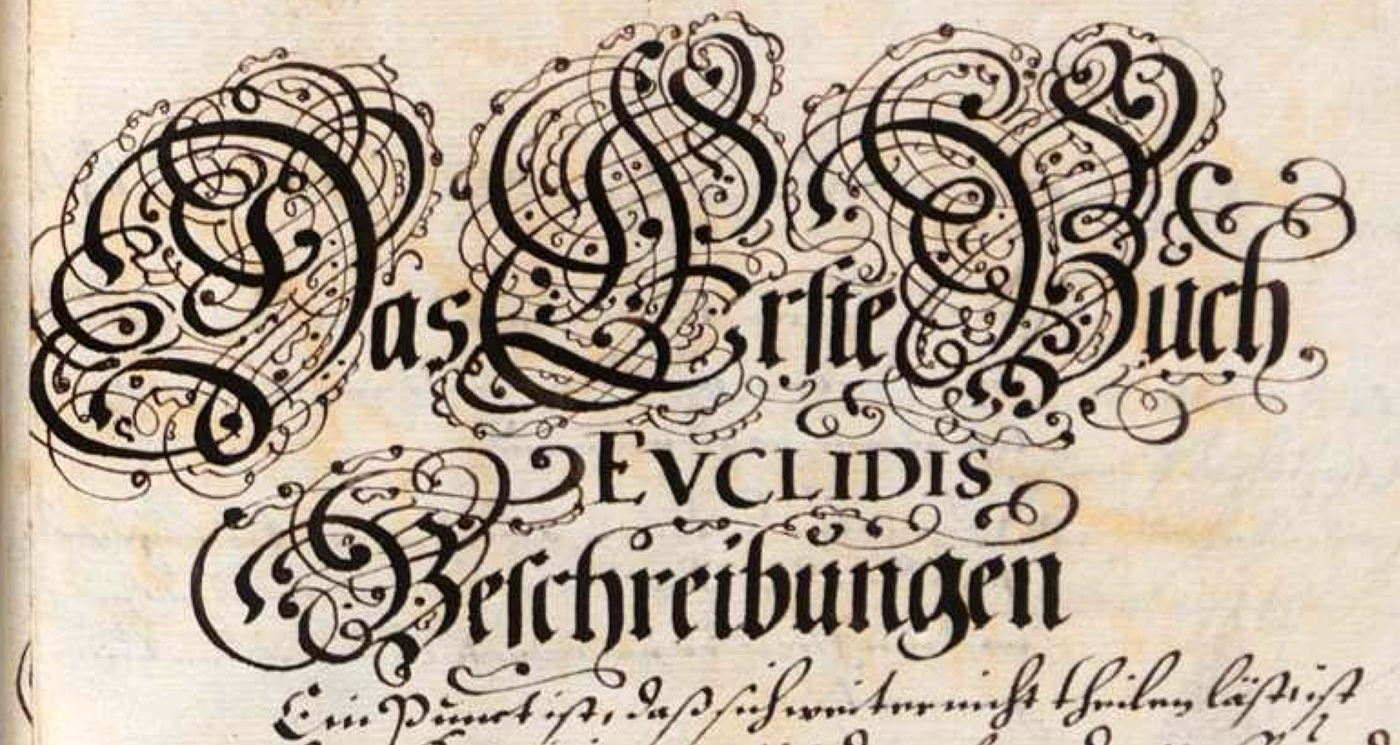 Das Erste Buch
EVCLIDIS
Beschreibungen
Ein Punct ist, daß sich weiter nicht theilen läst, ist